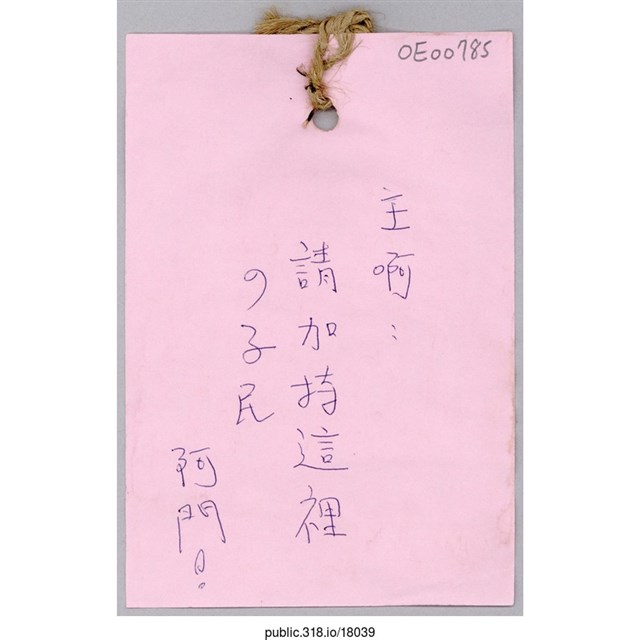 OE00785
主啊：
請加持這裡
の子民
阿門！
public.318.io/18039